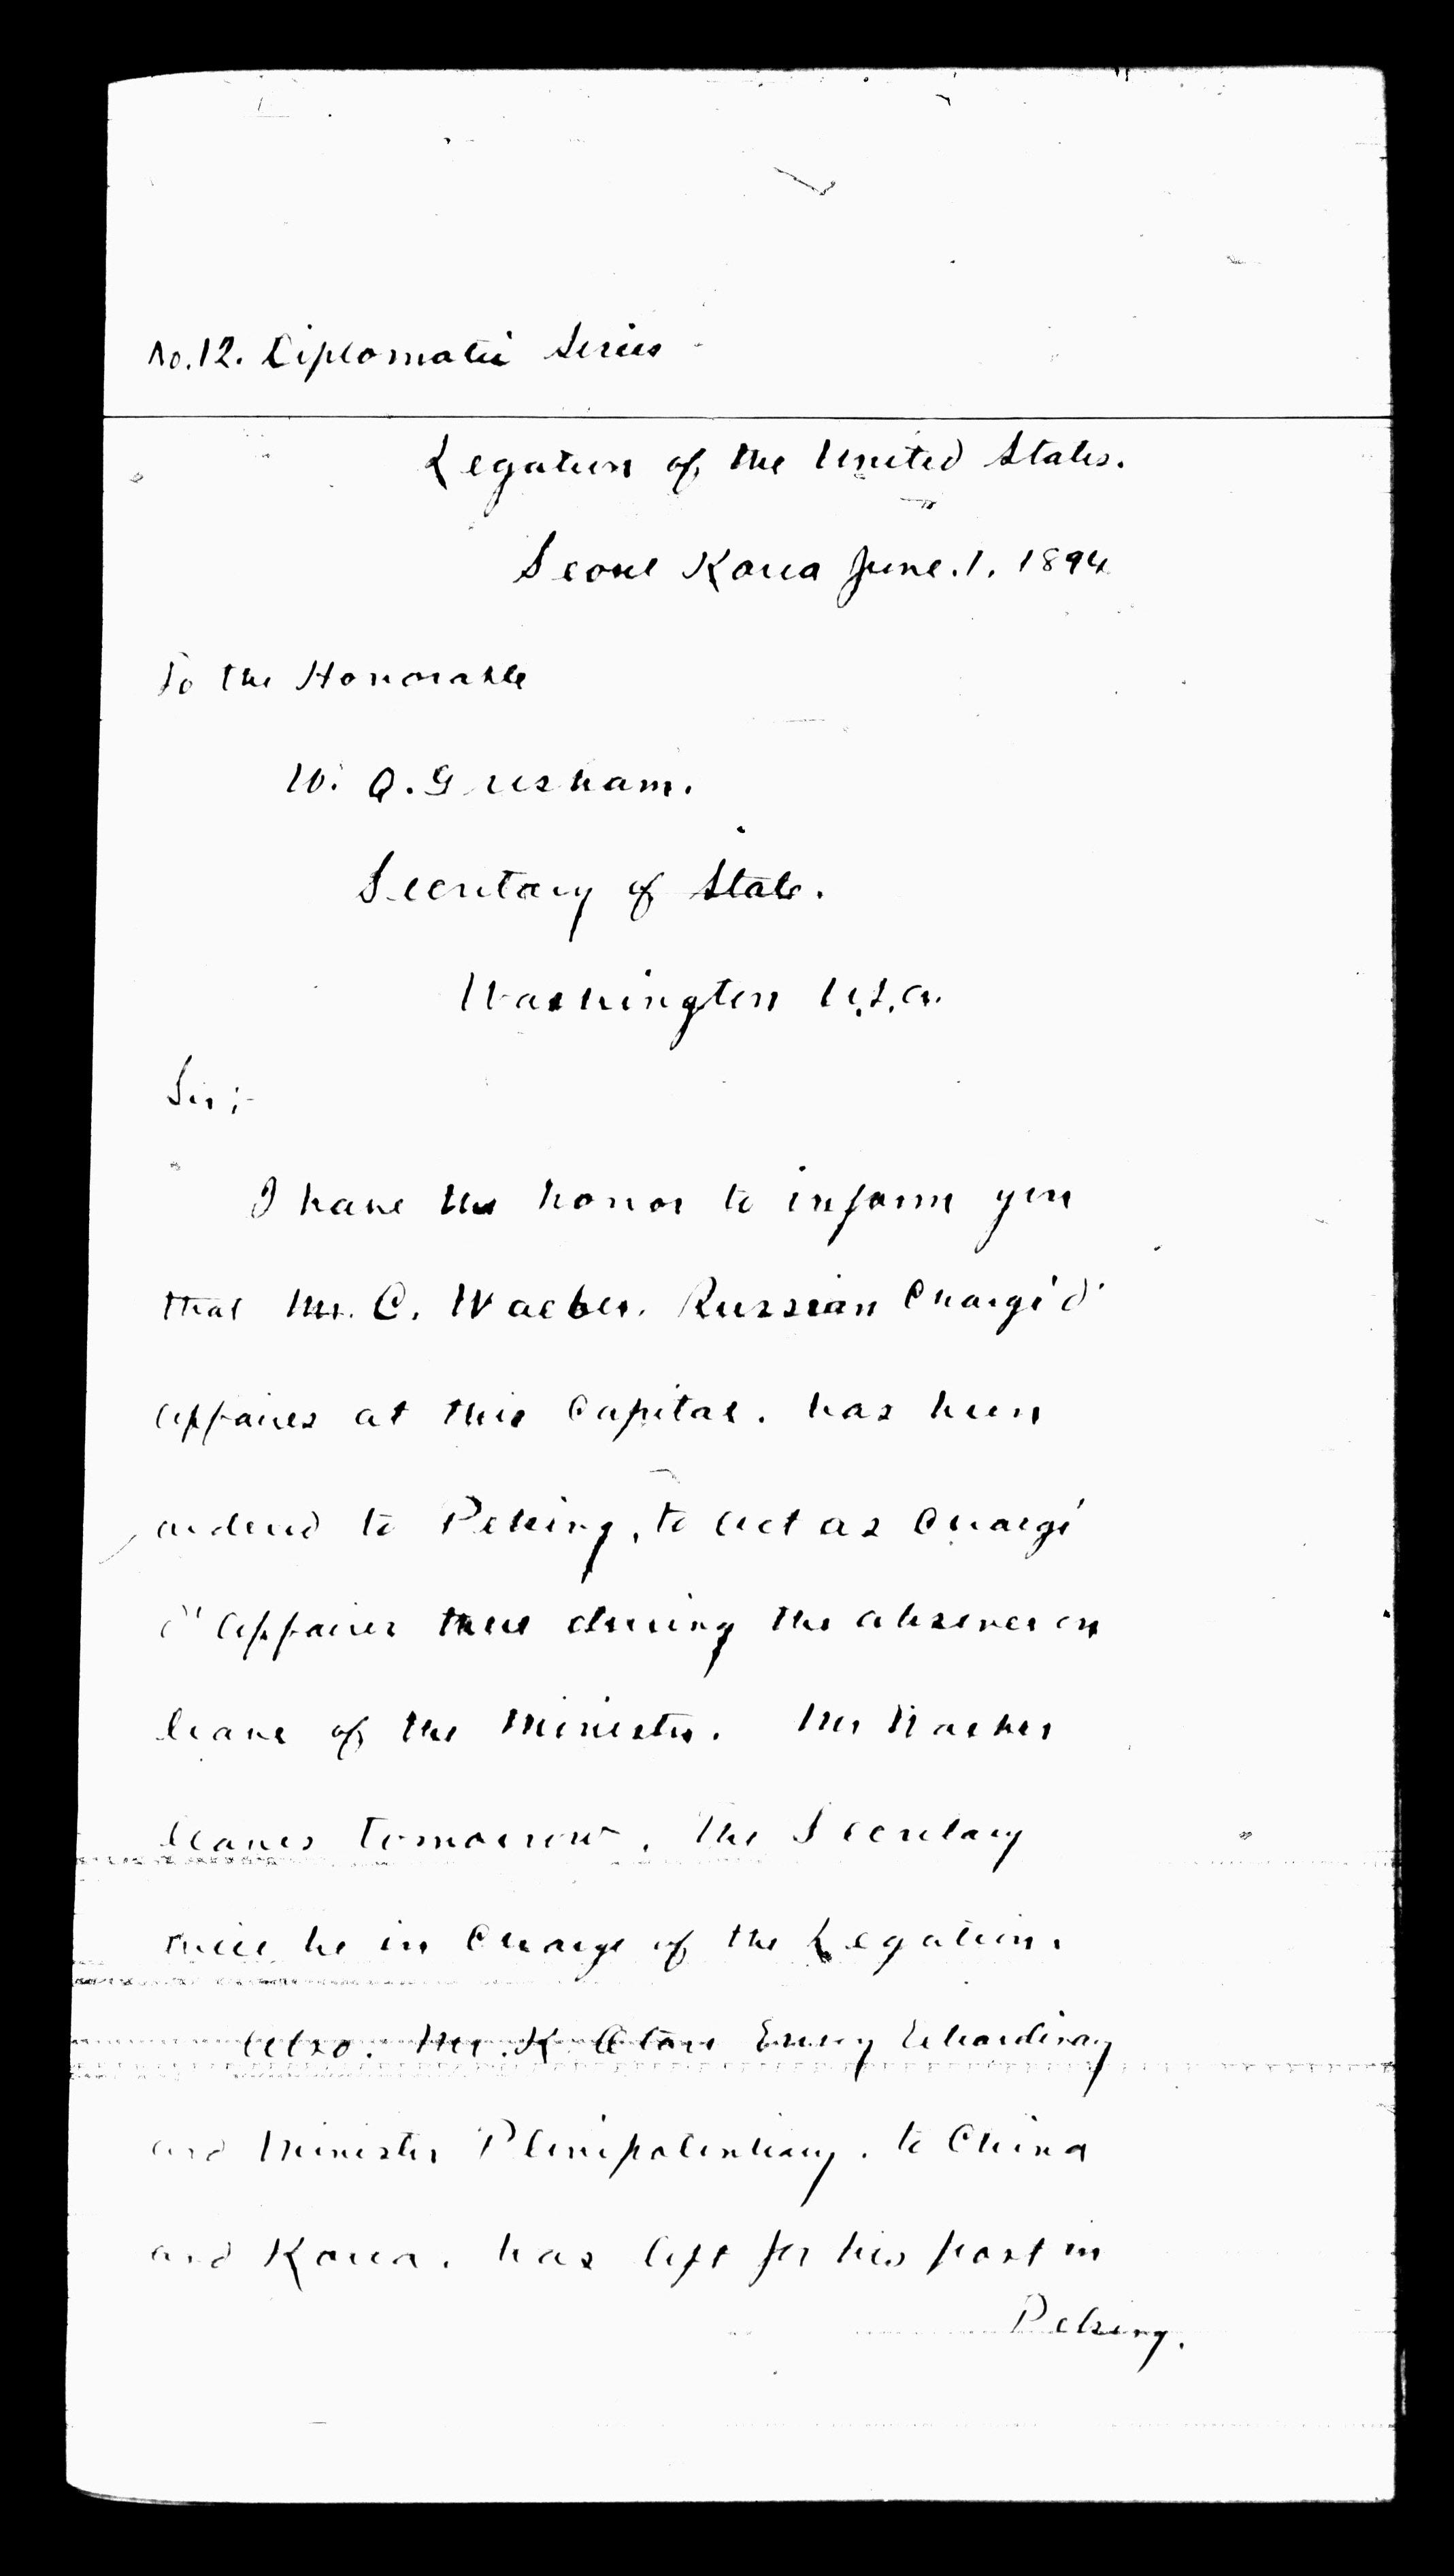 No.12. Diplomatic Series
Legation of the United States.
Seoul Korea June.1. 1894
To the Honorable
W. Q. Gresham.
Secretary of State.
Washington U.S.A.
Sir;-
I have the honor to inform you
that Mr. C. Waeber. Russian Chargé d'
Affaires at this Capital. has been
ordered to Peking, to act as Chargé
d'Affaires there during the absence on
leave of the Minister. Mr Waeber
leaves tomorrow. The Secretary
will be in Charge of the Legation.
Also. Mr. K. Otori Envoy Extraordinary
and Minister Plenipotentiary. to China
and Korea. has left for his post in
Peking.